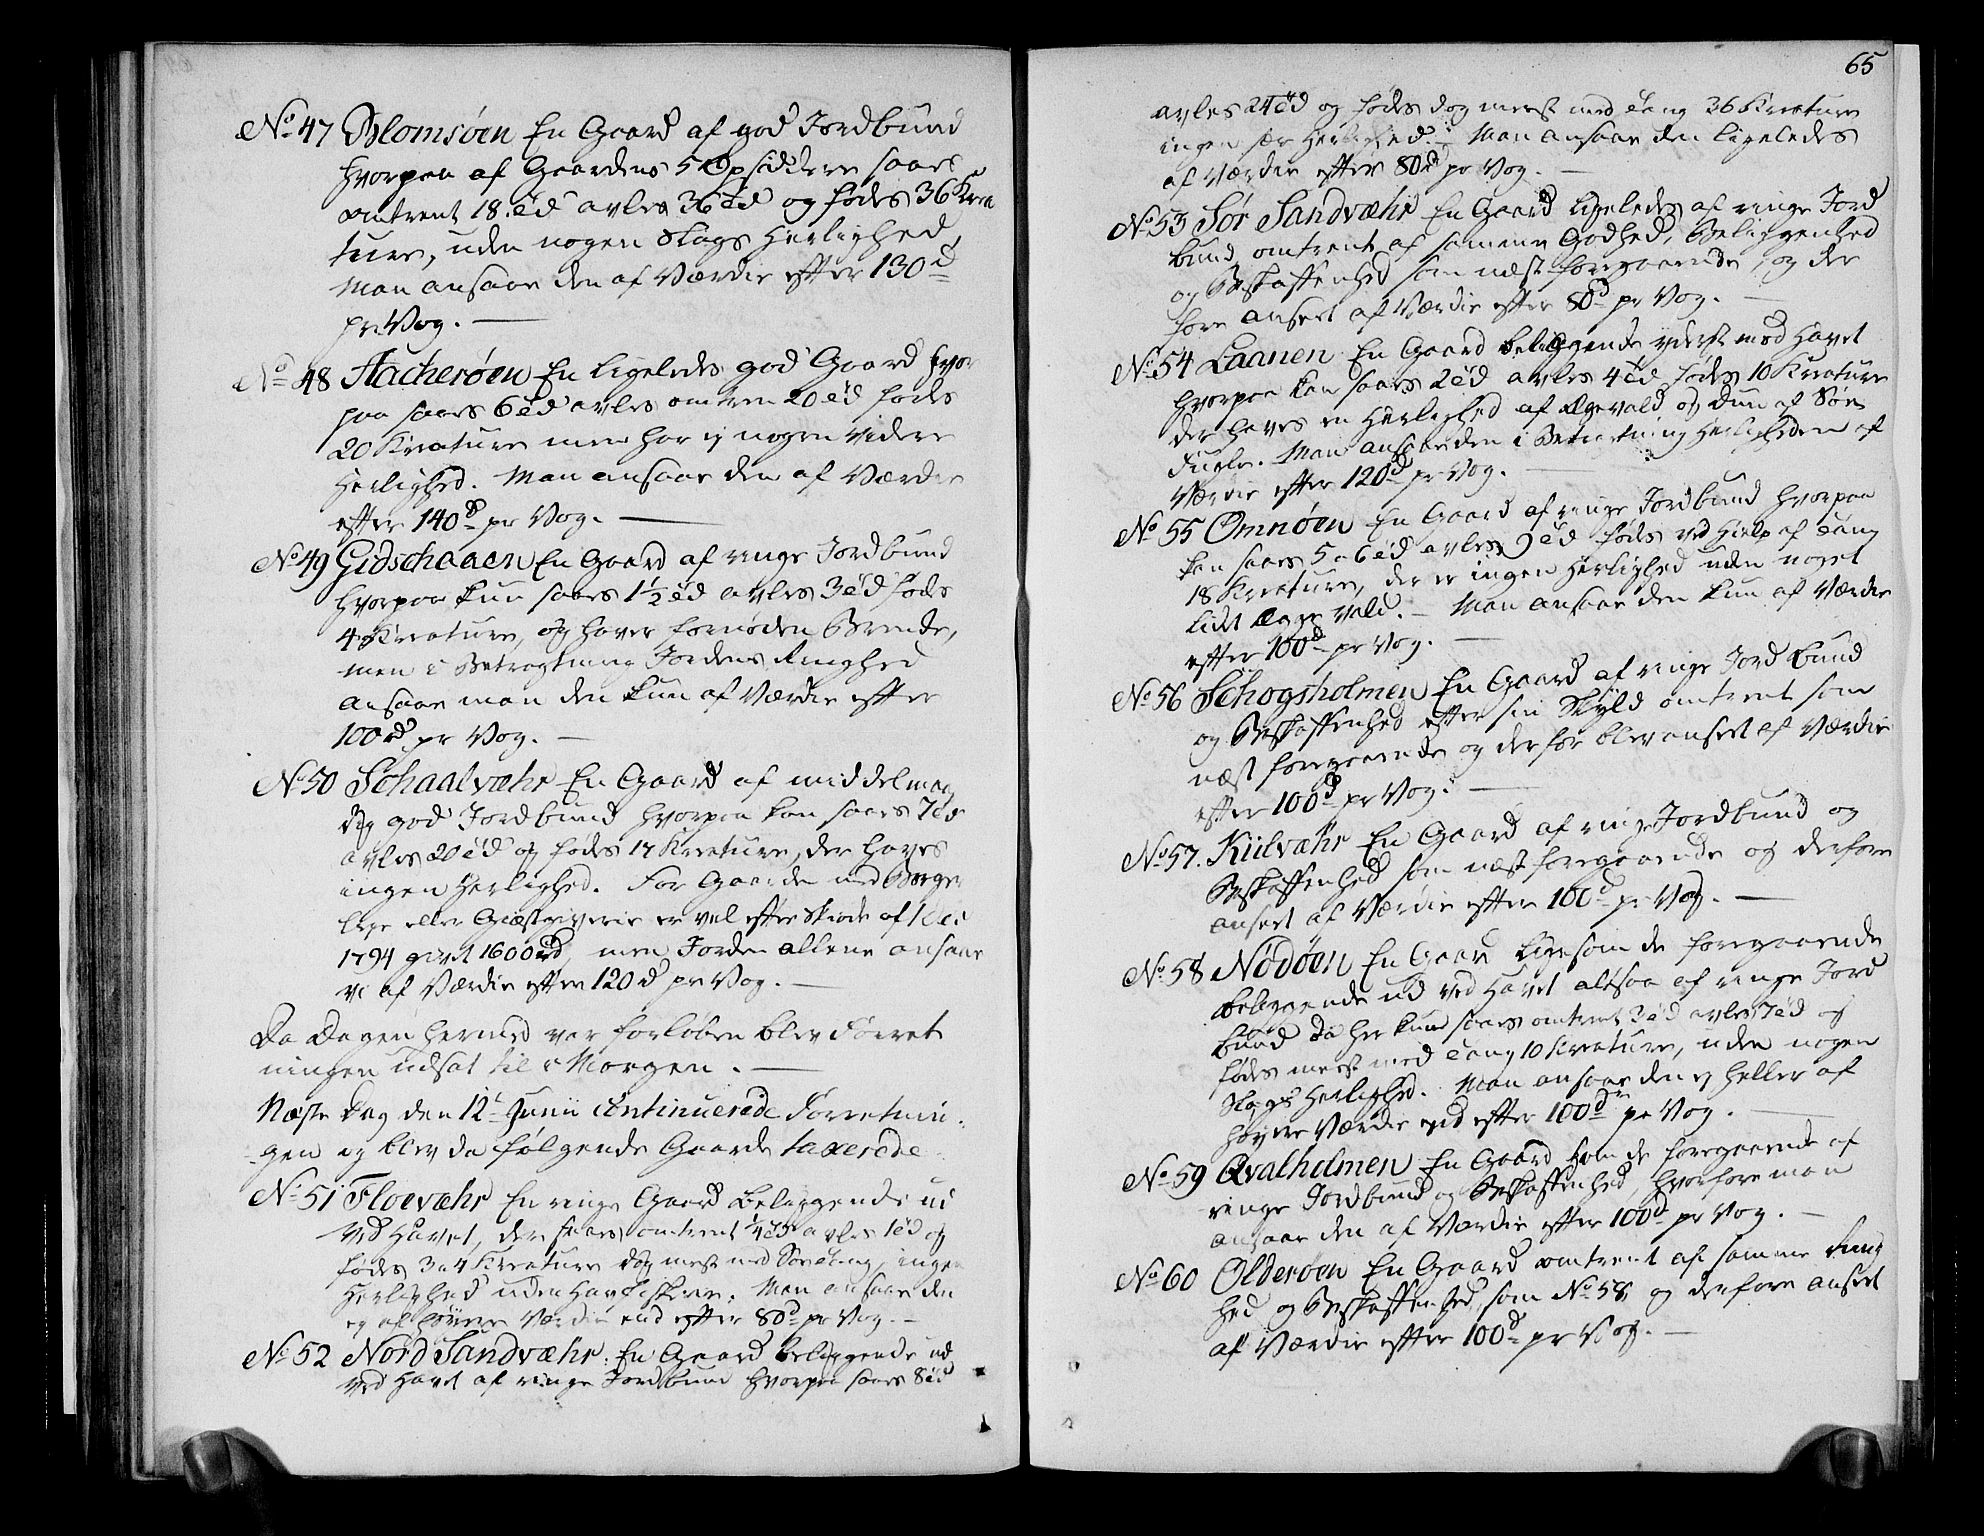 No 47 Blomsøen En Gaard af god Jordbund
hvorpaa af Gaardens 5 Opsiddere saaes
omtrent 18 td avles 36 td og fødes 36 Krea
ture, uden nogen Slags Herlighed
Man ansaae den af Værdie efter 130 d
pr Vog. —
No 48 Hacherøen En ligeledes god Gaard hvor
paa saaes 6 td avles omtren 20 td fødes
20 Kreature men har ej nogen videre
Herlighed. Man ansaae den af Værdie
efter 140 d pr Vog. —
No 49 Gidschaaen En Gaard af ringe Jordbund
hvorpaa kun saaes 1½ td avles 3 td fødes
4 Kreature, og haver fornøden Brende,
men i Betragtning Jordens Ringhed
ansaae man den kun af Værdie efter
100 rd pr Vog. —
No 50 Schaalvæhr En Gaard af middelmaa
dig god Jordbund hvorpaa kan saaes 7 td
avles 20 td og fødes 17 Kreature, der haves
ingen Herlighed. For Gaarden med Borger
leje eller Giæstgiverie er vel efter Skiøde af
1794 givet 1600 rd, men Jorden allene ansaae
vi af Værdie efter 120 d pr Vog. —
Da Dagen hermed var forløben blev Forret
ningen udsat til i Morgen. —
Næste Dag den 12te Junii continuerede Forretnin
gen og blev da følgende Gaarde taxerede
No 51 Floevæhr En ringe Gaard beliggende ud
ved Havet, der saaes omtrent ¼ td avles 1 td og
fødes 3 a 4 Kreature dog mest med Søetang, ingen
Herlighed uden Havfiskerie. Man ansaae den
ej af høyere Værdie end efter 80 d pr Vog. —
No 52 Nord Sandvæhr. En Gaard beliggende ud
ved Havet af ringe Jordbund hvorpaa saaes 8 td
65
avles 24 td og fødes dog meest med Tang 36 Kreature
ingen sær Herlighed. Man ansaae den ligeledes
af Værdie efter 80 d pr Vog. —
No 53 Sør Sandvæhr En Gaard ligeledes af ringe Jord
bund omtrent af samme Godhed, Beliggenhed
og Beskaffenhed som næst foregaaende, og der
fore anseet af Værdie efter 80 d pr Vog. —
No 54 Laanen En Gaard beliggende yderst med Havet
hvorpaa kan saaes 2 td avles 4 td fødes 10 Kreature
der haves en Herlighed af Eggevald og Duun af Søe
Fugle. Man ansaae den i Betragtning Herligheden af
Værdie efter 120 d pr Vog. —
No 55 Omnøen En Gaard af ringe Jordbund hvorpaa
kan saaes 5 a 6 td avles td fødes ved Hielp af Tang
18 Kreature, der er ingen Herlighed uden noget
lidet Eggevald. — Man ansaae den kun af Værdie
efter 100 d pr Vog. —
No 56 Schogsholmen En Gaard af ringe Jordbund
og Beskaffenhed efter sin Skyld omtrent som
næst foregaaende og derfor blev anseet af Værdie
efter 100 d pr Vog. —
No 57. Kiilvæhr En Gaard af ringe Jordbund og
Beskaffenhed som næst foregaaende og derfore
anseet af Værdie efter 100 d pr Vog. —
No 58 Nodøen En Gaard ligesom de foregaaende
beliggende ud ved Havet altsaa af ringe Jord
bund da her kun saaes omtrent 3 td avles 7 td og
fødes meest med Tang 10 Kreature, uden nogen
Slags Herlighed. Man ansaae den ej heller af
høyere Værdie end efter 100 d pr Vog. —
No 59 Qvalholmen En Gaard som de foregaaende af
ringe Jordbund og Beskaffenhed, hvorfore man
ansaae den af Værdie efter 100 d pr Vog. —
No 60 Olderøen En Gaard omtrent af samme Ring
hed og Beskaffenhed som No 58, og derfore anseet
af Værdie efter 100 d pr Vog. —